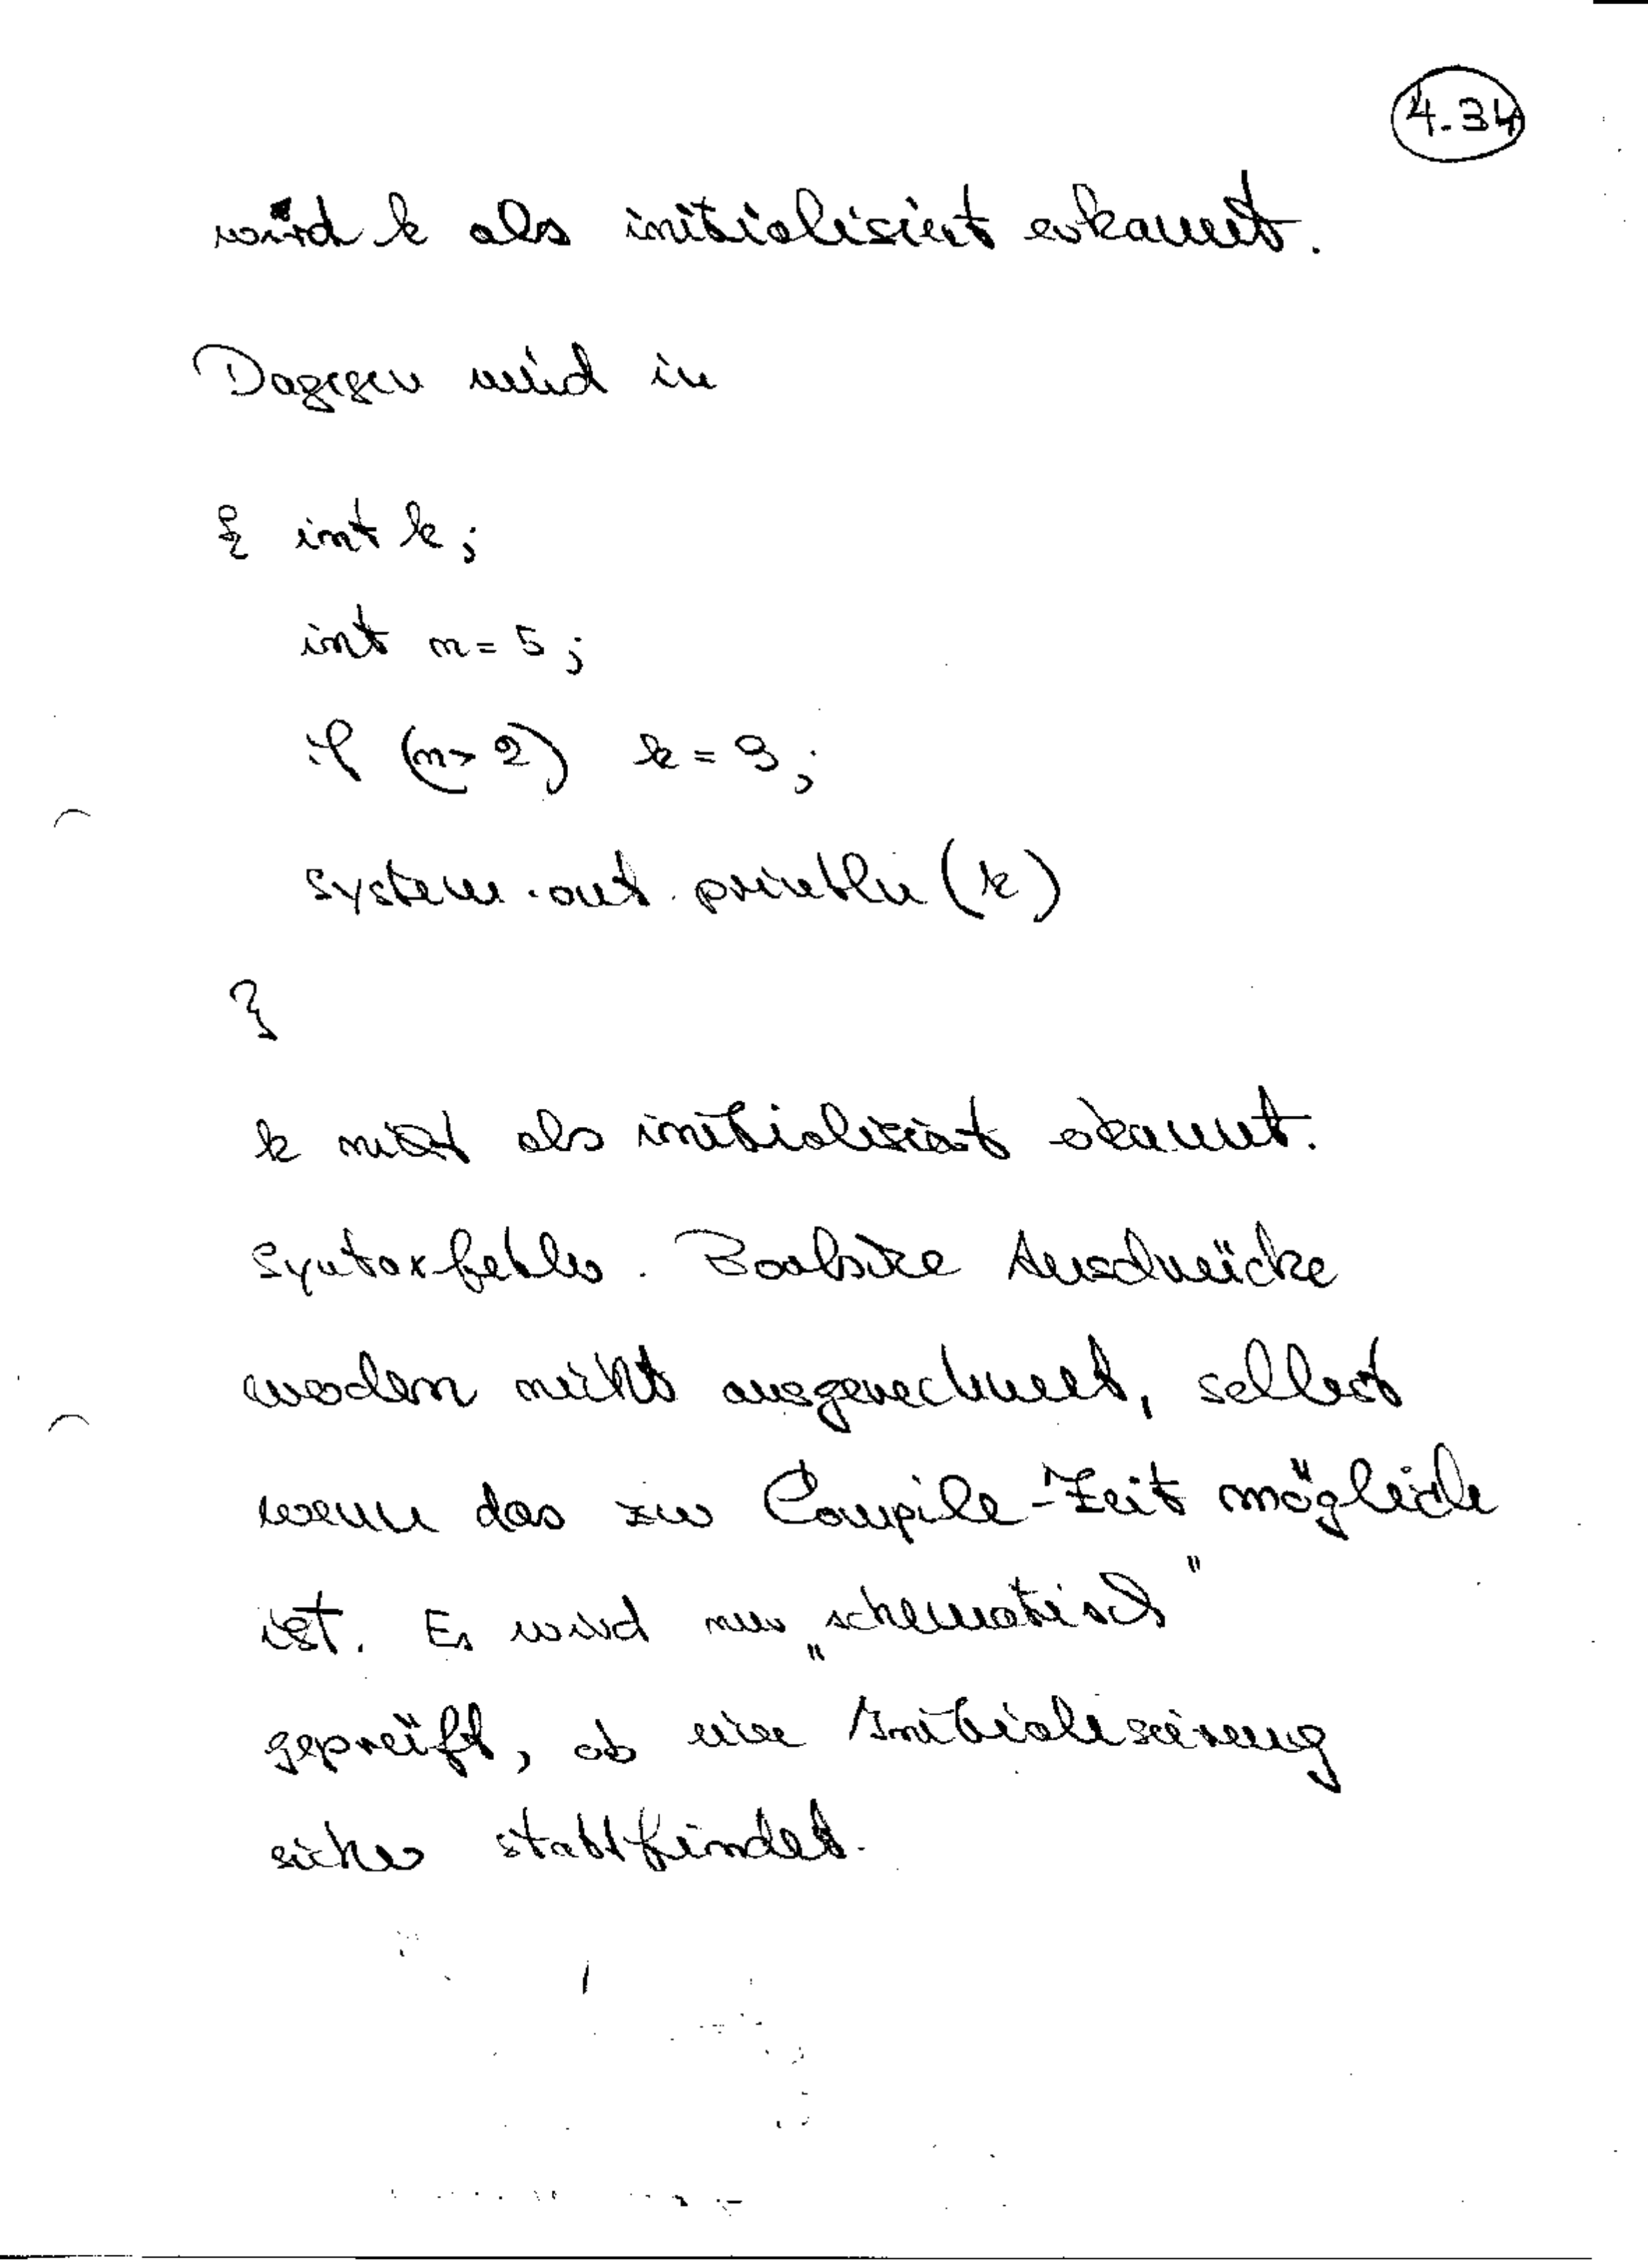 4.34
wird k als initialisiert erkannt.
Dagegen wird in
{ int k;
int n = 5;
if (n > 2) k = 9;
System.out.println(k)
}
k nicht als initialisiert erkannt.
Syntaxfehler. Boolsche Ausdrücke
werden nicht ausgerechnet, selbst
wenn das zur Compile-Zeit möglich
ist. Es wird nur „schematisch"
geprüft, ob eine Initialisierung
sicher stattfindet.